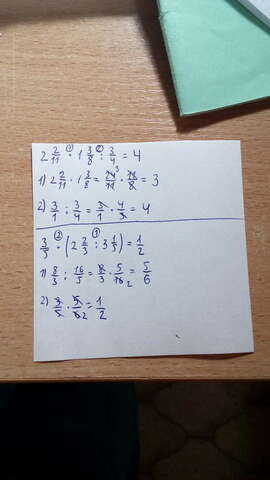 2 2/11 · 1 3/8 : 3/4 = 4
1) 2 2/11 · 1 3/8 = 24/11 · 11/8 = 3
2) 3/1 : 3/4 = 3/1 · 4/3 = 4
3/5 · (2 2/3 : 3 1/5) = 1/2
1) 8/3 : 16/5 = 8/3 · 5/16 2 = 5/6
2) 3/5 · 5/6 2 = 1/2